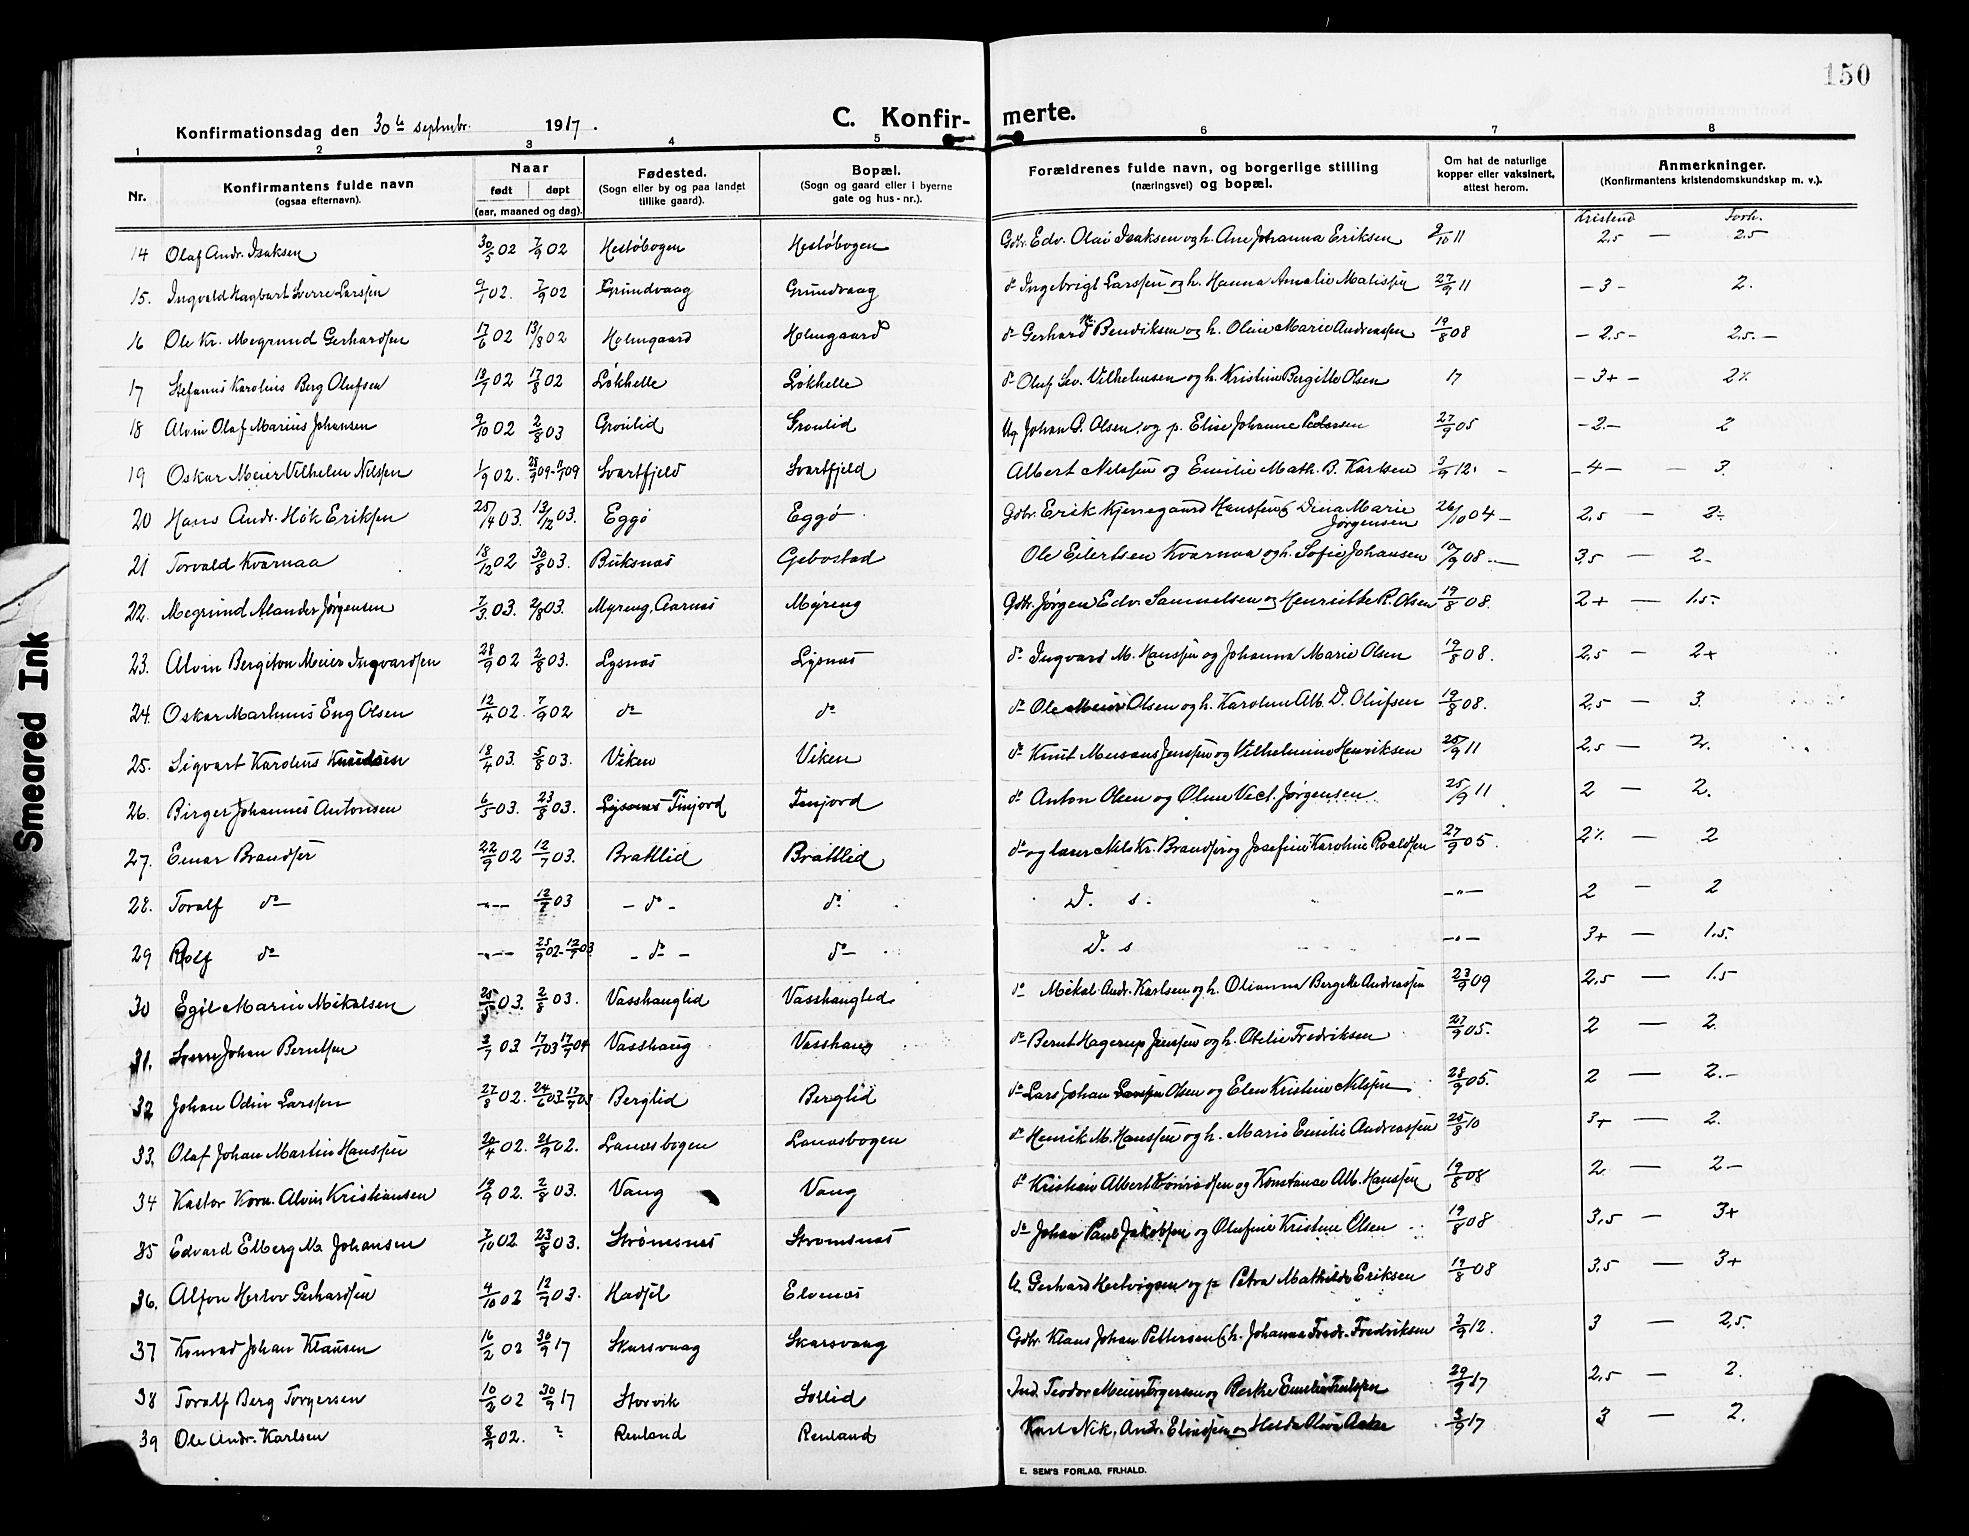 150
Konfirmationsdag den 30te septmbr. 1917.
C. Konfirmerte.
1 2 3 4 5 6 7 8
Nr. Konfirmantens fulde navn (ogsaa efternavn). Naar født døpt (aar, maaned og dag). Fødested. (Sogn eller by og paa landet tillike gaard). Bopæl. (Sogn og gaard eller i byerne gate og hus-nr.). Forældrenes fulde navn, og borgerlige stilling (næringsvei) og bopæl. Om hat de naturlige kopper eller vaksinert, attest herom. Anmerkninger. (Konfirmantens kristendomskundskap m. v.).
Kristend — Forh.
14 Olaf Andr. Isaksen 30/5 02 7/9 02 Hestöbogen Hestöbogen Gdbr. Edv. Olai Isaksen og h. Ane Johanna Eriksen 9/10 11 2,5 — 2.5
15. Ingvald Hagbart Sverre Larssen 9/1 02. 7/9 02 Grundvaag Grundvaag do Ingebrigt Larssen og h. Hanna Amalie 27/9 11 - 3 - 2.
16 Ole Kr. Megrund Gerhardsen 17/6 02 13/8 02 Holmgaard Holmgaard do Gerhard M. Bendiksen og h. Oline Marie Andreassen 19/8 08 - 2,5 - 2,5. —
17 Stefanus Karolius Berg Olufsen 19/1 02 17/8 02 Lökhelle Lökhelle do Oluf Sev. Vilhelmsen og h. Kristine Bergitte Olsen 17 - 3+ - 2%
18 Alvin Olaf Marius Johansen 9/10 02 2/8 03 Gronlid Gronlid Ug Johan P. Olsen og p. Elise Johanne Pedersen 27/9 05 - 2. - 2
19 Oskar Meier Vilhelm Nilssen 1/9 02. Svartfjeld Svartfjeld Albert Nilssen og Emilie Math. B. Karlsen 3/9 12. - - 4 - - 3.
20 Hans Andr. Hök Eriksen 25/4 03. 13/12 03. Eggö Eggö Gdbr. Erik Kjersgaard Hanssen & Dina Marie Jørgensen 26/10 04 - 2,5 — 2-
21 Torvald Kvarnaa 18/12 02 30/8 03. Buksnes Gebostad Ole Eilertsen Kvarnaa og h. Sofie Johansen 10/9 08 - 3,5 — 2-
22. Megrund Alander Jørgensen 7/3 03. 2/8 03. Myreng, Aarnes Myreng Gdbr. Jörgen Edv. Samuelsen og Henriette R. Olsen 19/8 08. 2+ — 1.5.
23. Alvin Bergiton Meier Ingvardsen 28/9 02 2/8 03. Lysnes Lysnes do Ingvard M. Hanssen og Johanna Marie Olsen 19/8 08. 2,5 — 2+
24. Oskar Marlinus Eng Olsen 12/4 02. 7/9 02 do do do Ole Meier Olsen og h. Karoline Alb. D. Olufsen 19/8 08. 2,5 — 3.
25. Sigvart Karolius Knudsen 18/4 03. 5/8 03. Viken Viken do Knut Jenssen og Vilhelmine Henriksen 25/9 11 2,5 — 2.
26. Birger Johannes Antonsen 6/5 03. 23/8 03. Lysnes Finjord Finjord do Anton Olsen og Oline Vict. Jørgensen 25/9 11 2 — 2.
27. Einar Brandser 22/9 02 12/7 03. Brattlid Brattlid do og lærer Nils Kr. Brandser og Josefine Karoline Roaldsen 27/9 05. 2% — 2
28. Toralf do - " - - 12/7 03 - do - do D. s. - " - 2 — 2
29 Rolf do - " - - 25/9 02 - 12/7 03 - do - do D. s - " - 3+ — 1.5.
30 Egil Marin Mikalsen 25/5 03. 2/8 03. Vasshauglid Vasshauglid do Mikal Andr. Karlsen og h. Olianna Bergitte Andreassen 23/9 09 2,5 — 1.5
31. Sverre Johan Berntsen 2/7 03. 17/7 03 17/7 04 Vasshaug Vasshaug do Bernt Hagerup Jenssen og h. Otelie Fredriksen 27/9 05. 2 — 2.
32 Johan Odin Larssen 27/8 02. 24/6 03 - 17/7 03 Berglid Berglid do Lars Johan Larssen Olsen og Elen Kristine Nilssen 28/9 05. 2 — 2. -
33. Olaf Johan Martin Hanssen 20/4 02. 21/9 02. Lanesbogen Lanesbogen do Henrik M. Hanssen og h. Marie Emilie Andreassen 25/8 10 3+ — 2.
34 Kastor Korn. Alvin Kristiansen 19/9 02. 2/8 03. Vang Vang do Kristian Albert Konradsen og Konstanse Alb. Hanssen 19/8 08 2 — 2 -
35 Edvard Elberg M. Johansen 7/10 02 23/8 03. Strömsnes Stromsnes do Johan Paul Jakobsen og Olufine Kristine Olsen 19/8 08 3,5 — 3+
36. Alfon Herlov Gerhardsen 4/10 02 12/7 03. Hadsel Elvenes U. Gerhard Hertvigsen og p. Petra Mathilde Eriksen 19/8 08 3,5 — 3+
37 Konrad Johan Klausen 16/2 02 30/9 17 Skarsvaag Skarsvaag Gdbr. Klaus Johan Pettersen & h. Johanna Fredr. Fredriksen 3/9 12. 3 — 2,5.
38 Toralf Berg Torgersen 10/2 02 30/9 17 Storvik Sollid Ind. Teodor Meier Torgersen og 29/9 17 2,5 — 2.
39 Ole Andr. Karlsen 8/9 02. ? Renland Renland Karl Nik. Andr. 3/9 17 3 — 2.
E. SEM'S FORLAG, FR.HALD.
Smeared Ink